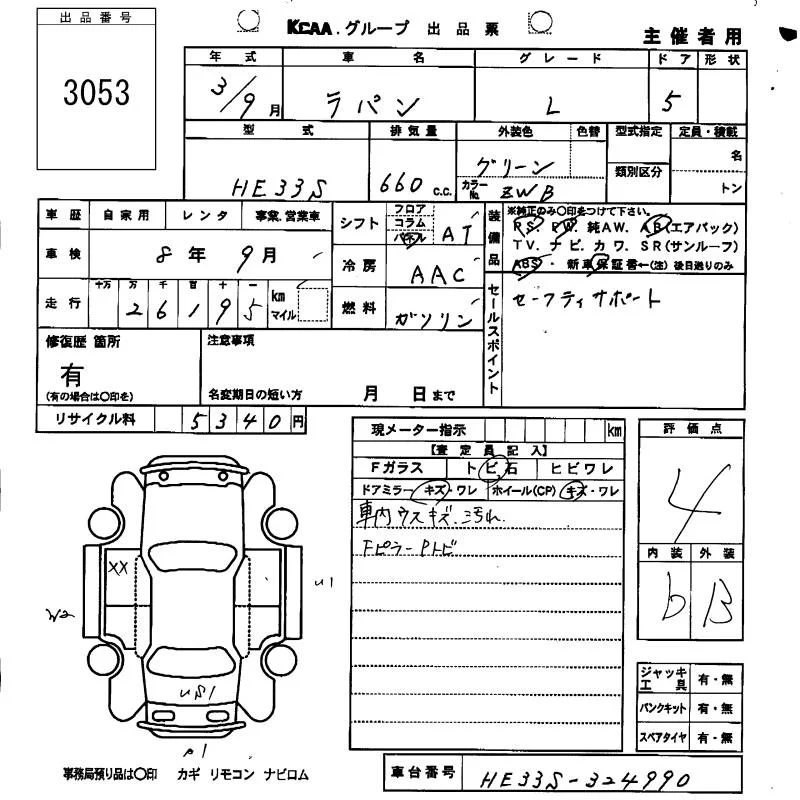 出品番号
3053
KCAA.グループ 出品票
主催者用
年式 車名 グレード ドア 形状
3/9月 ラパン L 5
型式 排気量 外装色 色替 型式指定 定員・積載
HE33S 660 c.c. グリーン 名
カラーNo. ZWB 類別区分 トン
車歴 自家用 レンタ 事業.営業車
シフト フロア コラム パネル AT
装備品
※純正のみ○印をつけて下さい。
PS. PW. 純AW. AB(エアバック)
TV. ナビ. カワ. SR(サンルーフ)
ABS・新車保証書←(注)後日送りのみ
車検 8年9月
冷房 AAC
走行 十万 万 千 百 十 一
26195 km マイル
燃料 ガソリン
セールスポイント
セーフティサポート
修復歴 箇所
有
(有の場合は○印を)
注意事項
名変期日の短い方 月 日まで
リサイクル料 5340円
現メーター指示 km
【査定員記入】
Fガラス トビ石 ヒビワレ
ドアミラー キズ・ワレ ホイール(CP) キズ・ワレ
車内ウスキズ.汚れ.
Fピラー Pトビ
評価点
4
内装 外装
b B
XX
U1
W2
US1
P1
ジャッキ 工具 有・無
パンクキット 有・無
スペアタイヤ 有・無
事務局預り品は○印 カギ リモコン ナビロム
車台番号 HE33S-324990